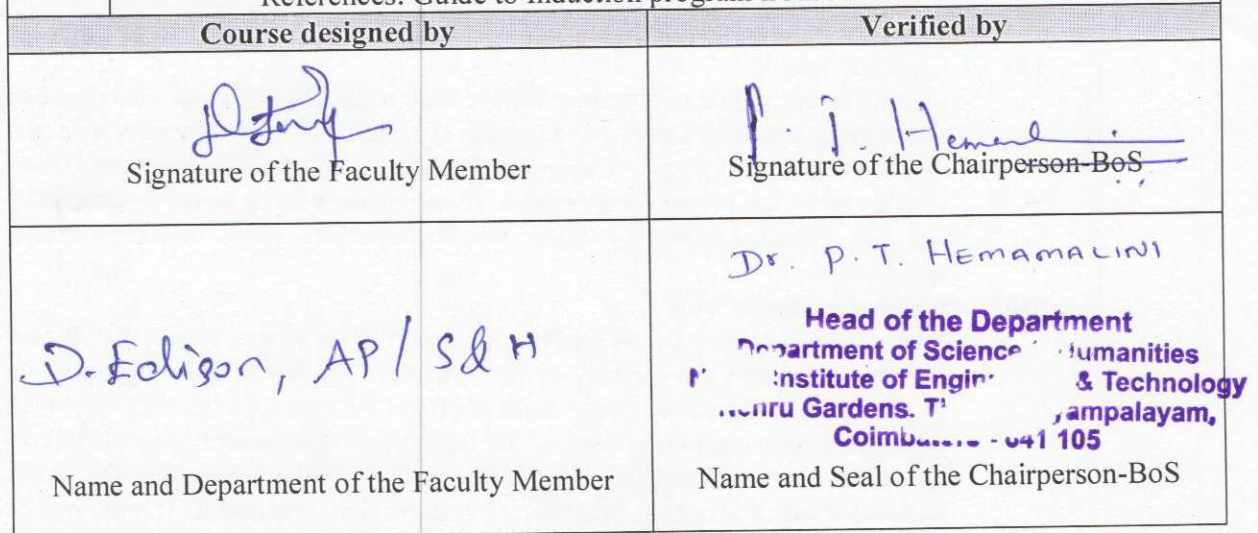 References: Guide to Induction program
Course designed by
Verified by
Signature of the Faculty Member
P. T. Hemal
Signature of the Chairperson-BoS
D. Edison, AP / S&H
Name and Department of the Faculty Member
Dr. P. T. HEMAMALINI
Head of the Department
Department of Science Humanities
Institute of & Technology
Gardens.
Coimbatore - 641 105
Name and Seal of the Chairperson-BoS